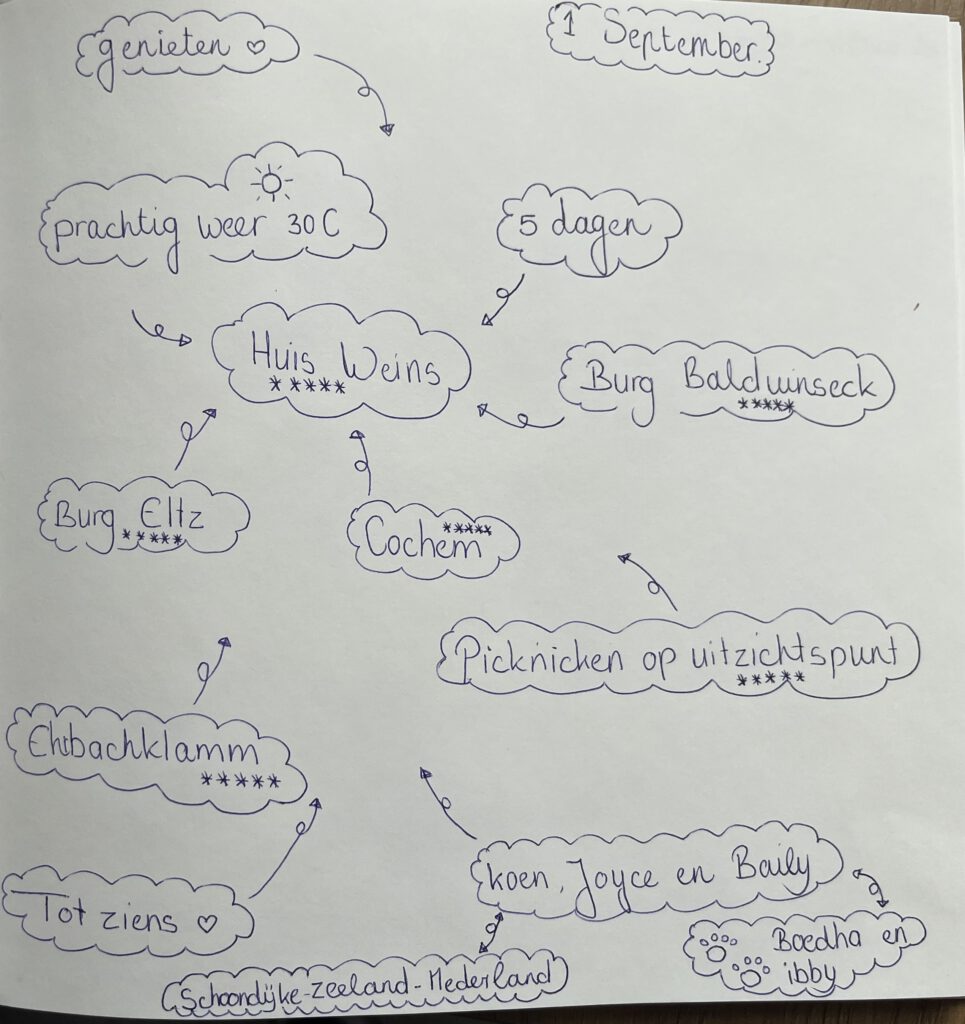 genieten ♡
1 September.
prachtig weer 30 C
5 dagen
Huis Weins
*****
Burg Balduinseck
*****
Burg Eltz
*****
Cochem *****
Picknicken op uitzichtspunt
*****
Ehrbachklamm
*****
koen, Joyce en Baily
Tot ziens ♡
Boedha en
ibby
Schoondijke-Zeeland-Nederland